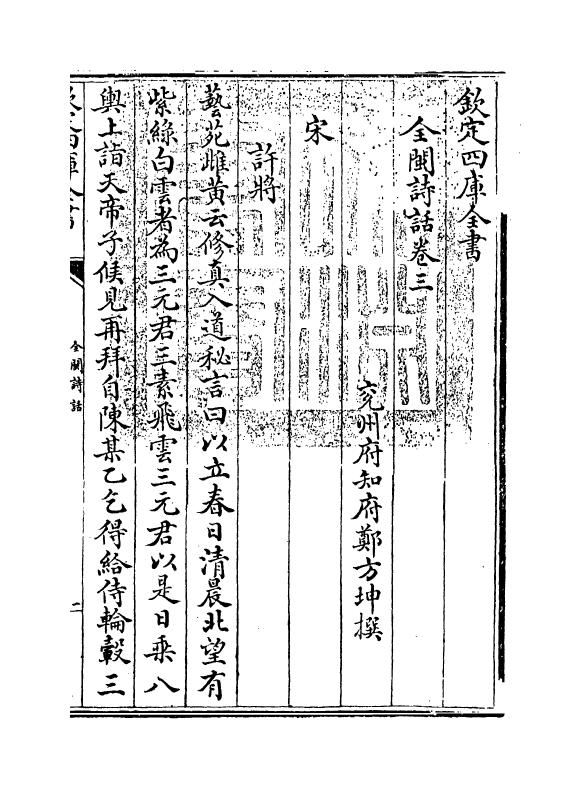 欽定四庫全書
全閩詩話卷三
兗州府知府鄭方坤撰
宋
許將
藝苑雌黃云修真入道秘言曰以立春日清晨北望有
紫綠白雲者為三元君三素飛雲三元君以是日乘八
輿上詣天帝子候見再拜自陳某乙乞得給侍輪轂三
全閩詩話